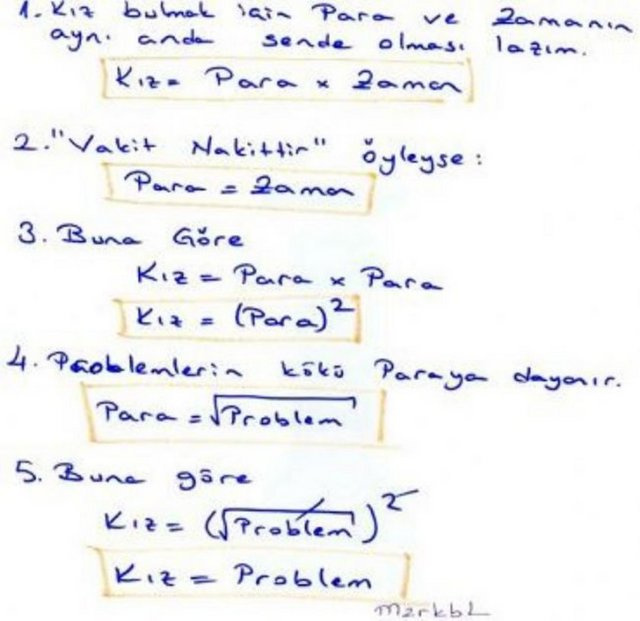 1. Kız bulmak için Para ve Zamanın
aynı anda sende olması lazım.
Kız = Para x Zaman
2. "Vakit Nakittir" öyleyse:
Para = Zaman
3. Buna Göre
Kız = Para x Para
Kız = (Para)²
4. Problemlerin kökü Paraya dayanır.
Para = √Problem
5. Buna göre
Kız = (√Problem)²
Kız = Problem
m2rkbL